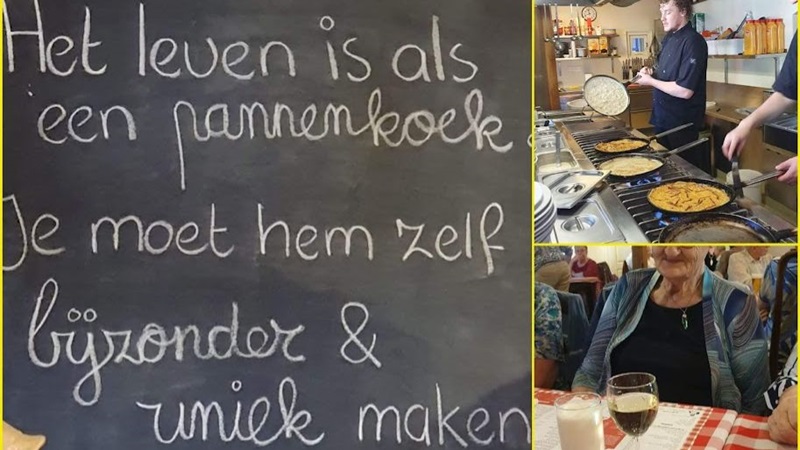 Het leven is als
een pannenkoek.
Je moet hem zelf
bijzonder &
uniek maken